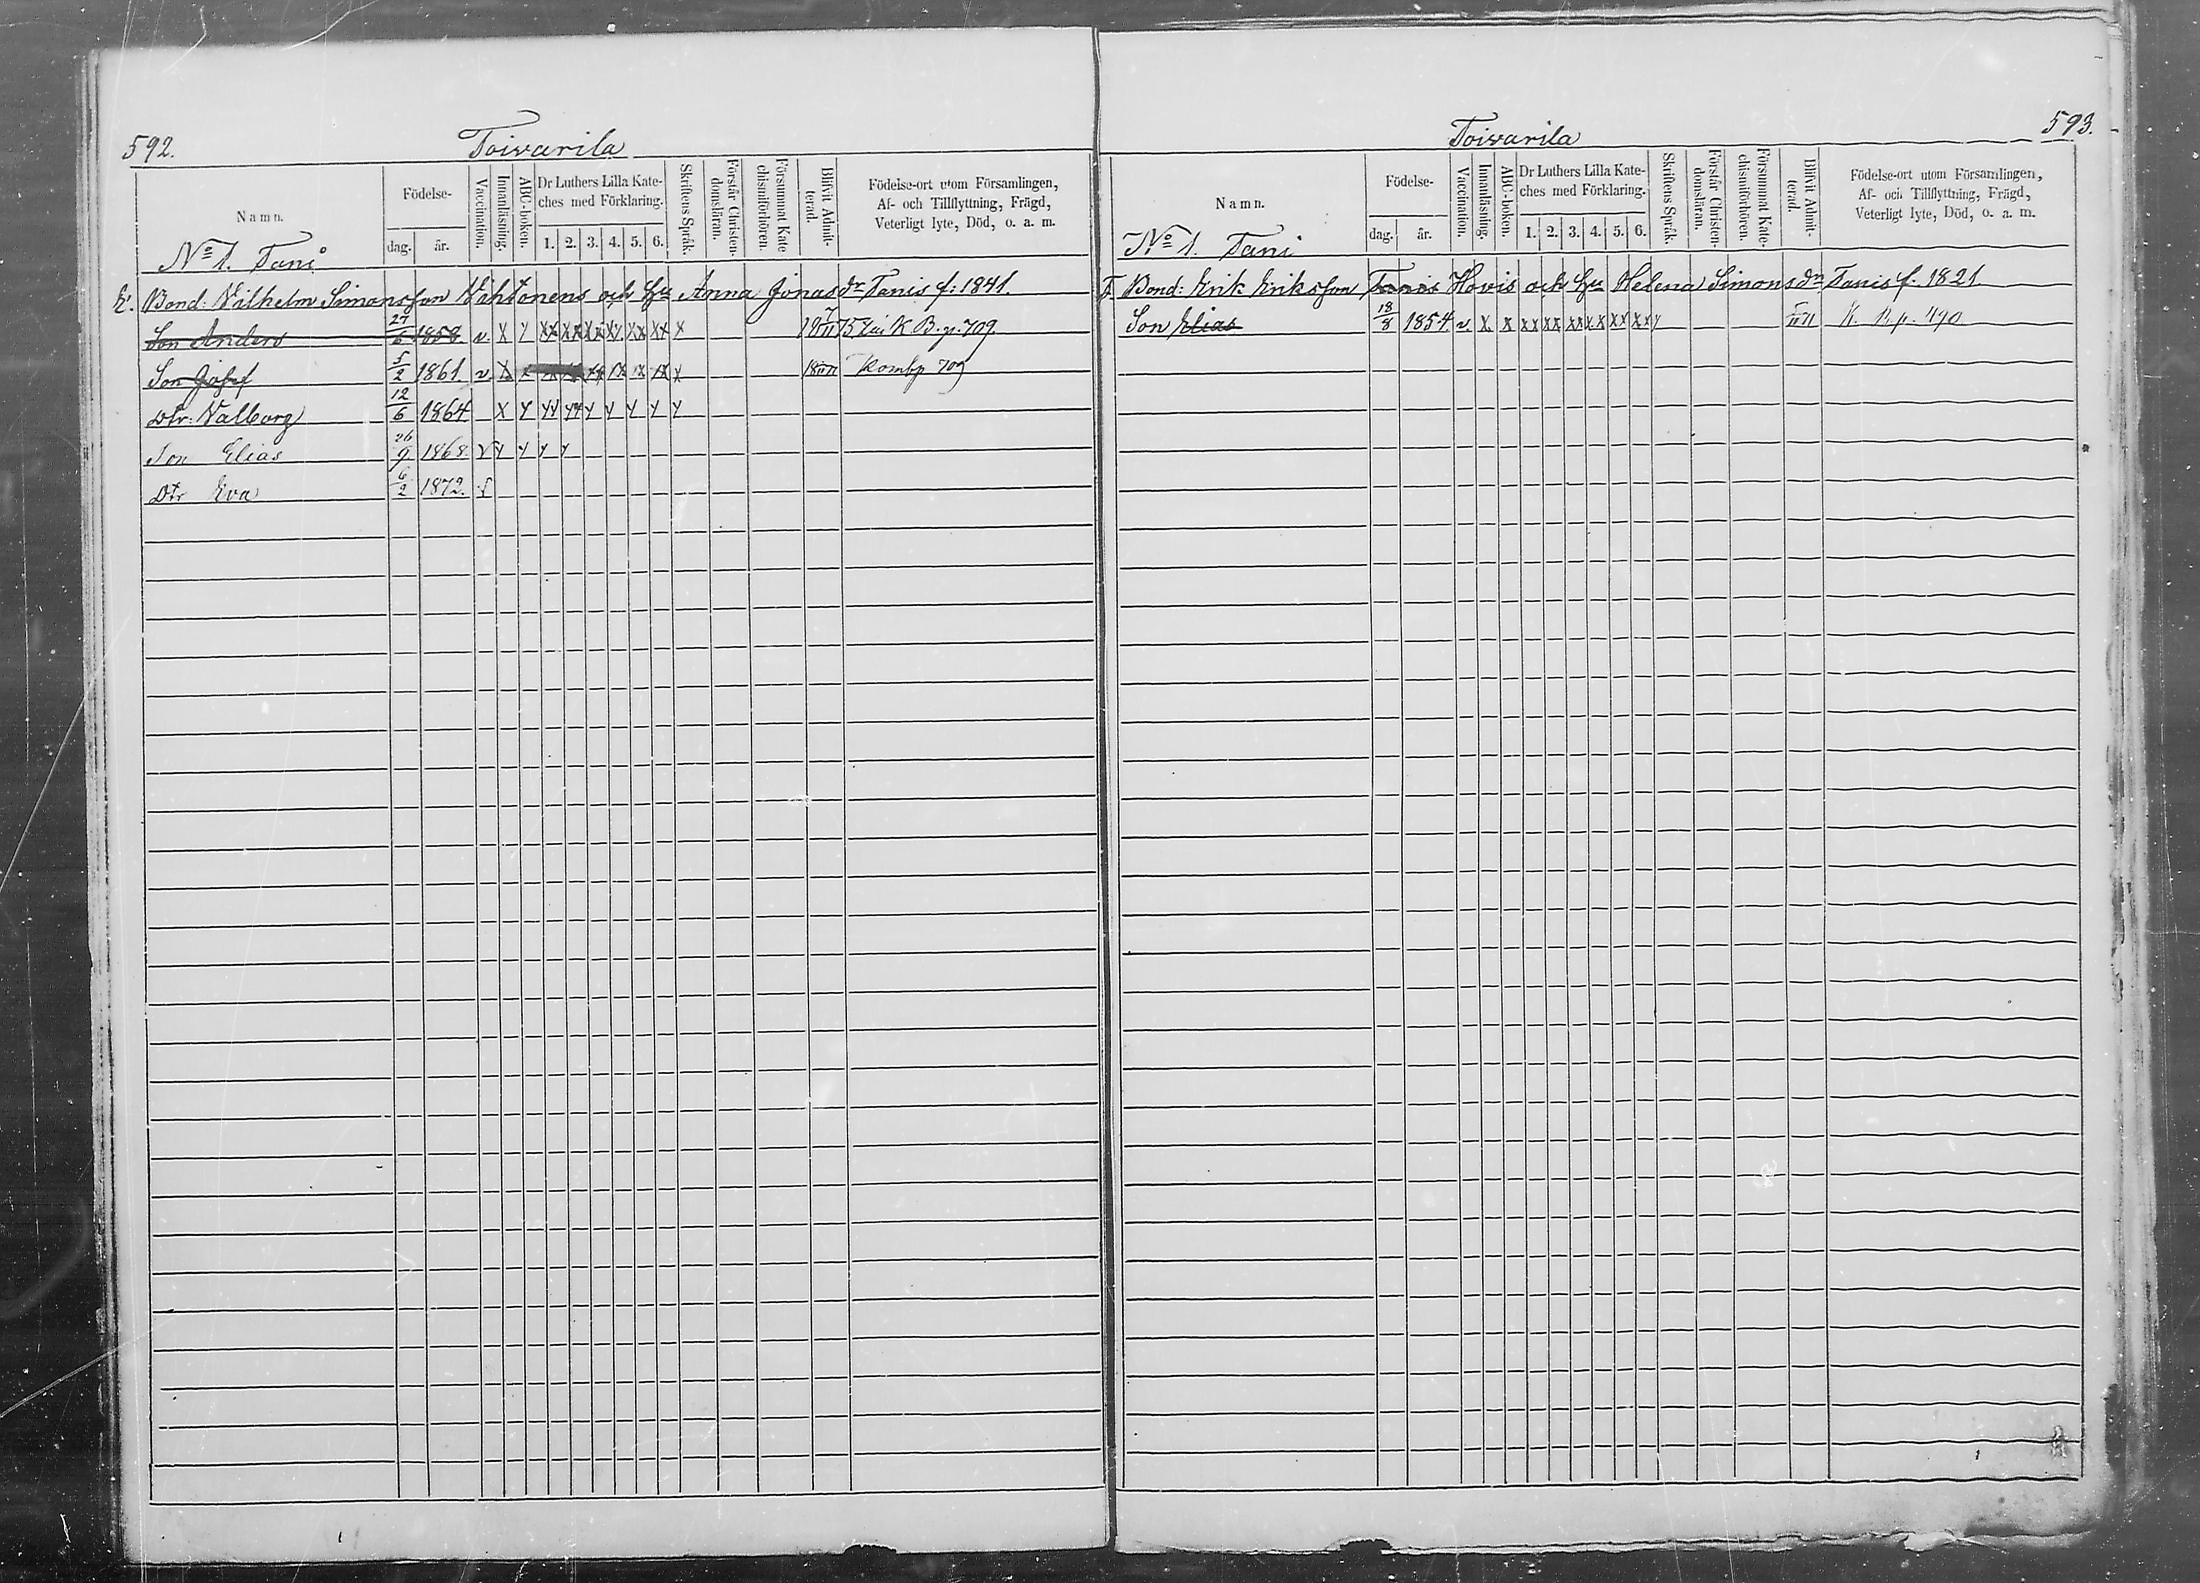 592.
Toivarila
Namn.
Födelse-
dag.
år.
Vaccination.
Innanläsning.
ABC-boken.
Dr Luthers Lilla Kate-
ches med Förklaring.
1. 2. 3. 4. 5. 6.
Skriftens Språk.
Förstår Christen-
domsläran.
Försummat Kate
chismiförhören.
Blifvit Admit-
terad.
Födelse-ort utom Församlingen,
Af- och Tillflyttning, Frägd,
Veterligt lyte, Död, o. a. m.
No 1. Tani
Bond: Vilhelm Simonsson Vahtonens och Hu Anna Jonasdr Tanis f: 1841.
Son Anders 27/6 1858 v. X Y XX XX XX XX XX X K. B. p. 709
Son Josef 5/2 1861 v X X X Kombp 709
Dtr. Valborg 12/6 1864 X Y YY YY Y Y Y Y Y
Son Elias 26/9 1868 V Y Y Y Y
Dtr Eva 6/2 1872.
593.
Toivarila
Namn.
Födelse-
dag.
år.
Vaccination.
Innanläsning.
ABC-boken.
Dr Luthers Lilla Kate-
ches med Förklaring.
1. 2. 3. 4. 5. 6.
Skriftens Språk.
Förstår Christen-
domsläran.
Försummat Kate-
chismiförhören.
Blifvit Admit-
terad.
Födelse-ort utom Församlingen,
Af- och Tillflyttning, Frägd,
Veterligt lyte, Död, o. a. m.
No 1. Tani
Bond: Erik Eriksson Tanis Hovis och Hu Helena Simonsdr Tanis f. 1821
Son Elias 18/8 1854 v X X XX XX XX XX XX XX Y K. B. p. 490